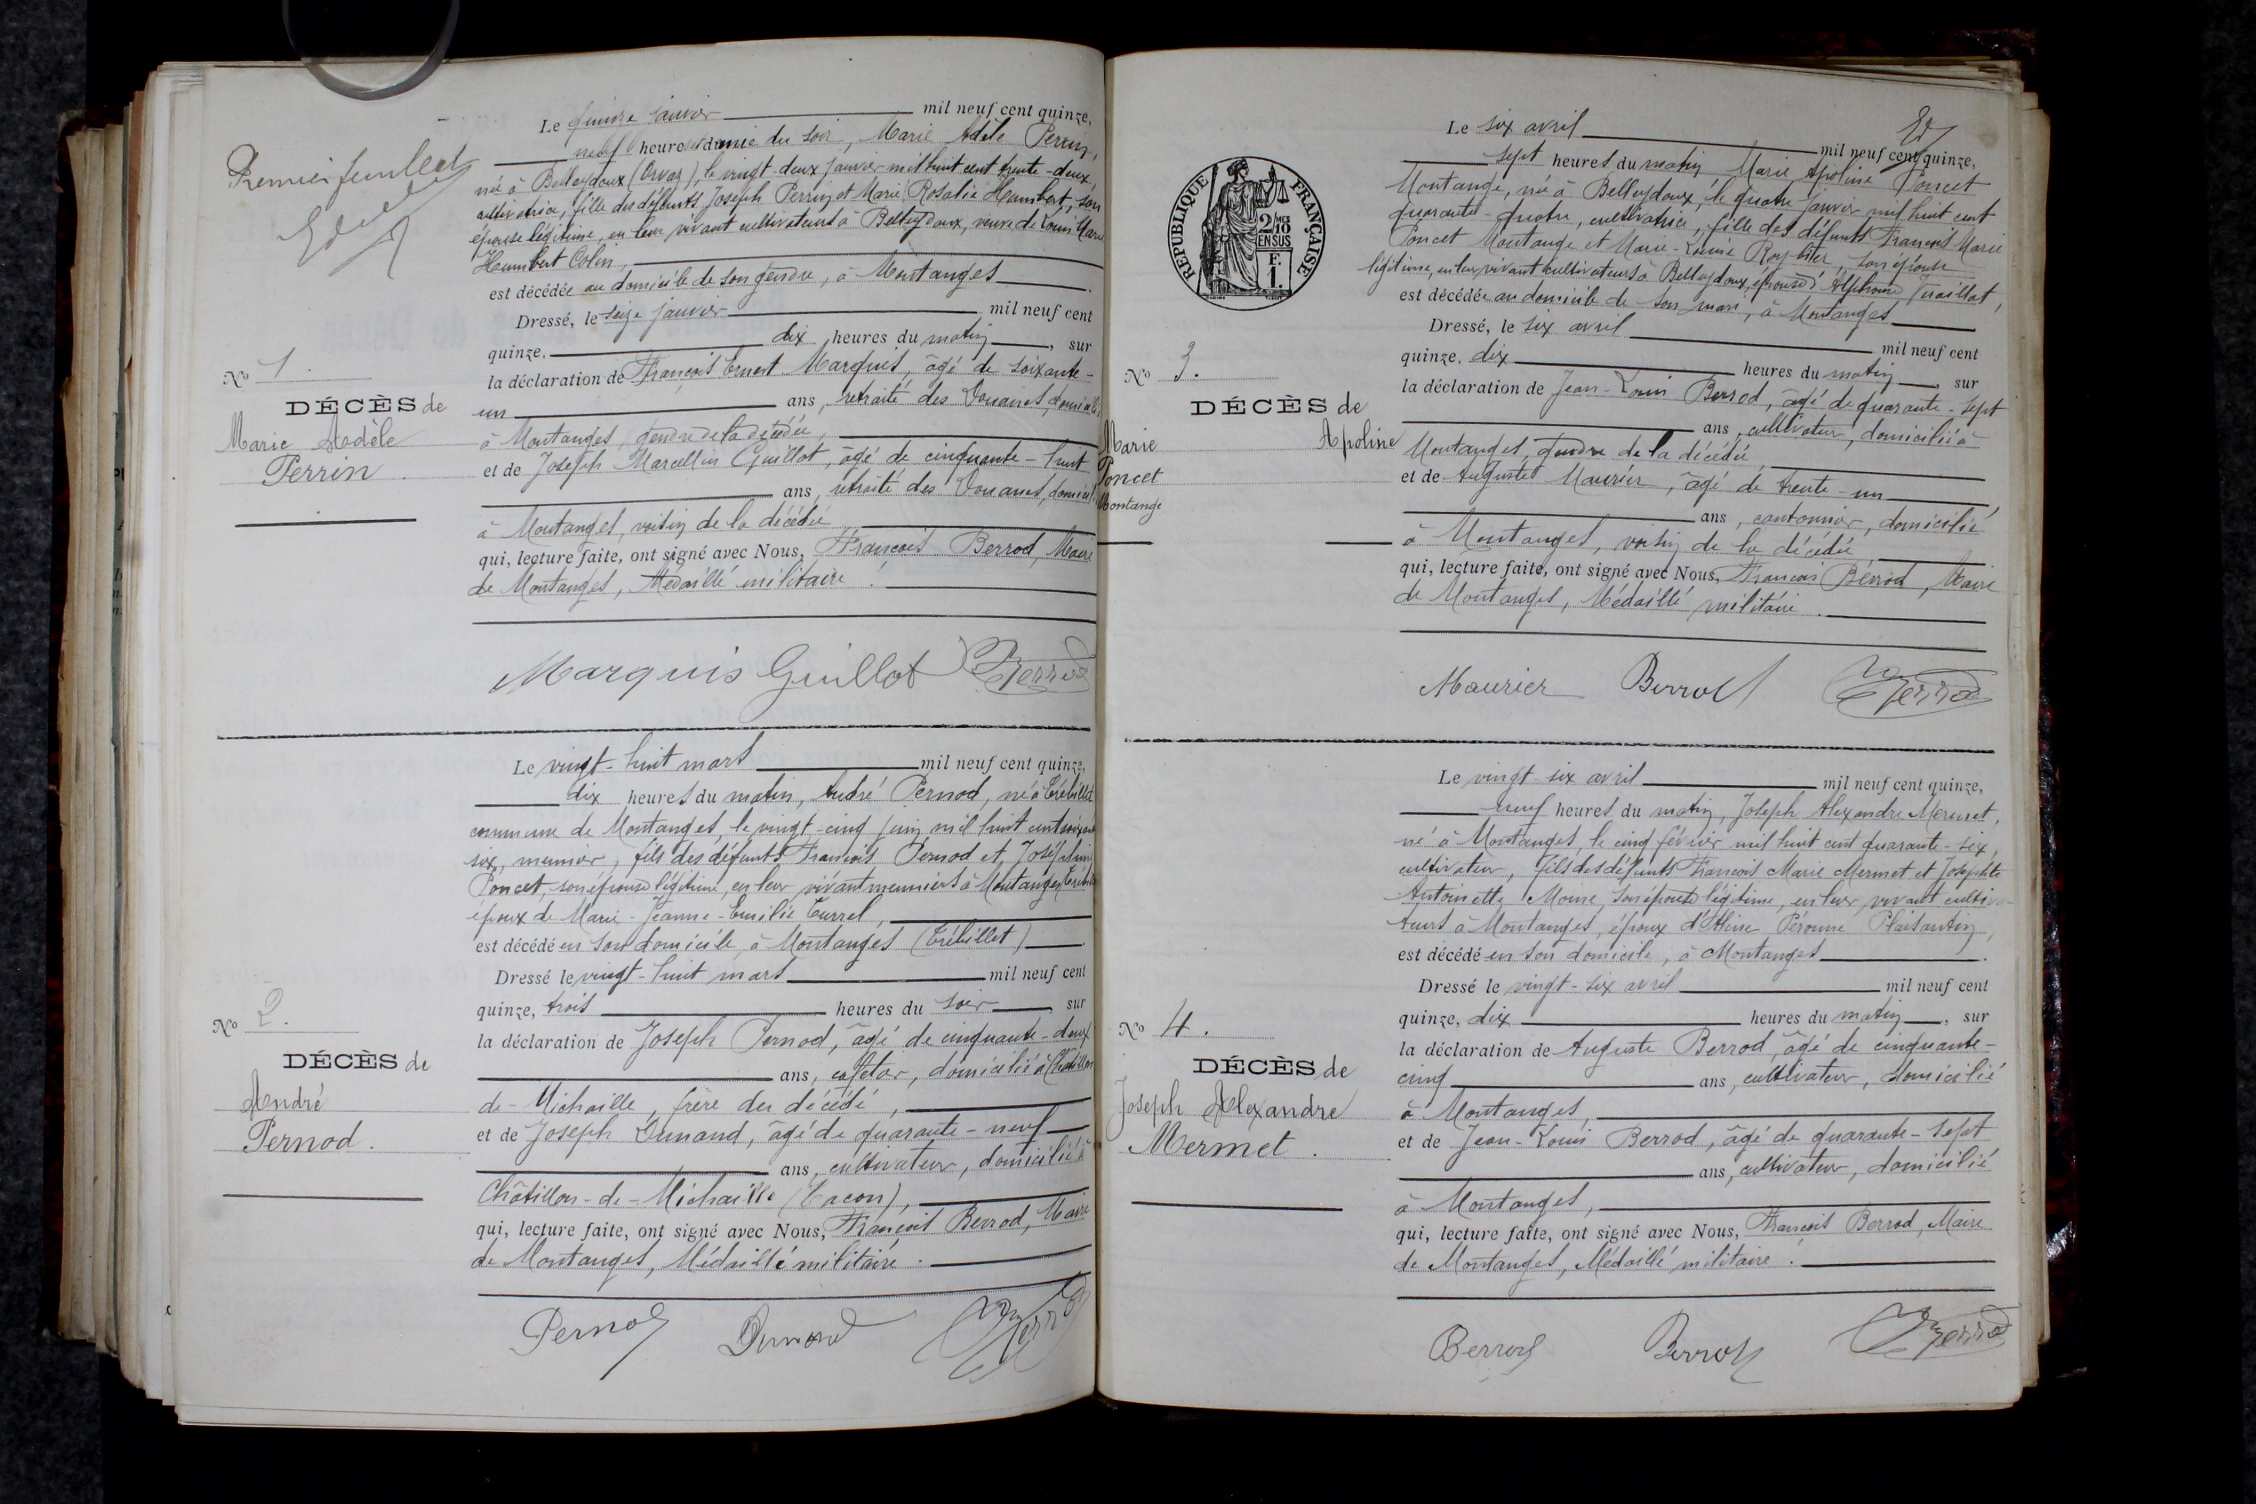 Premier feuillet
Le quinze janvier mil neuf cent quinze,
neuf heures et demie du soir, Marie Adèle Perrin,
née à Belleydoux (Orvaz), le vingt-deux janvier mil huit cent trente-deux,
cultivatrice, fille des défunts Joseph Perrin et Marie Rosalie Humbert, son
épouse légitime, en leur vivant cultivateurs à Belleydoux, veuve de Louis Marie
Humbert Colin,
est décédée au domicile de son gendre, à Montanges.
Dressé, le seize janvier mil neuf cent
quinze, dix heures du matin, sur
la déclaration de François Ernest Marquis, âgé de soixante-
un ans, retraité des Douanes, domicilié
à Montanges, gendre de la décédée,
et de Joseph Marcellin Guillot, âgé de cinquante-huit
ans, retraité des Douanes, domicilié
à Montanges, voisin de la décédée
qui, lecture faite, ont signé avec Nous, François Berrod, Maire
de Montanges, Médaillé militaire.
No 1.
DÉCÈS de
Marie Adèle
Perrin
Marquis Guillot Berrod
Le vingt-huit mars mil neuf cent quinze,
dix heures du matin, André Pernod, né à Trébillet
commune de Montanges, le vingt-cinq juin mil huit cent soixante
six, meunier, fils des défunts François Pernod et Joséphine
Poncet, son épouse légitime, en leur vivant meuniers à Montanges (Trébillet)
époux de Marie-Jeanne-Emilie Turrel,
est décédé en son domicile, à Montanges (Trébillet)
Dressé le vingt-huit mars mil neuf cent
quinze, trois heures du soir, sur
la déclaration de Joseph Pernod, âgé de cinquante-deux
ans, cafetier, domicilié à Châtillon
de-Michaille, frère du décédé,
et de Joseph Dunand, âgé de quarante-neuf
ans, cultivateur, domicilié à
Châtillon-de-Michaille (Tacon),
qui, lecture faite, ont signé avec Nous, François Berrod, Maire
de Montanges, Médaillé militaire.
No 2.
DÉCÈS de
André
Pernod.
Pernod Dunand Berrod
RÉPUBLIQUE FRANÇAISE
2/10 EN SUS
F.
1.
Le six avril mil neuf cent quinze,
sept heures du matin Marie Apoline Poncet
Montange, née à Belleydoux, le quatre janvier mil huit cent
quarante-quatre, cultivatrice, fille des défunts François Marie
Poncet Montange et Marie-Louise, son épouse
légitime, en leur vivant cultivateurs à Belleydoux, épouse d'Alphonse
est décédée au domicile de son mari, à Montanges
Dressé, le six avril mil neuf cent
quinze, dix heures du matin, sur
la déclaration de Jean-Louis Berrod, âgé de quarante-sept
ans, cultivateur, domicilié à
Montanges, gendre de la décédée
et de Auguste Maurier, âgé de trente-un
ans, cantonnier, domicilié
à Montanges, voisin de la décédée
qui, lecture faite, ont signé avec Nous, François Berrod, Maire
de Montanges, Médaillé militaire.
No 3.
DÉCÈS de
Marie Apoline
Poncet
Montange
Maurier Berrod Berrod
Le vingt-six avril mil neuf cent quinze,
neuf heures du matin, Joseph Alexandre Mermet,
né à Montanges, le cinq février mil huit cent quarante-six,
cultivateur, fils des défunts François Marie Mermet et Josephte
Antoinette Moine, son épouse légitime, en leur vivant cultiva-
teurs à Montanges, époux d'Aline Péronne Plaisantin,
est décédé en son domicile, à Montanges.
Dressé le vingt-six avril mil neuf cent
quinze, dix heures du matin, sur
la déclaration de Auguste Berrod, âgé de cinquante-
cinq ans, cultivateur, domicilié
à Montanges,
et de Jean-Louis Berrod, âgé de quarante-sept
ans, cultivateur, domicilié
à Montanges,
qui, lecture faite, ont signé avec Nous, François Berrod, Maire
de Montanges, Médaillé militaire.
No 4.
DÉCÈS de
Joseph Alexandre
Mermet.
Berrod Berrod Berrod